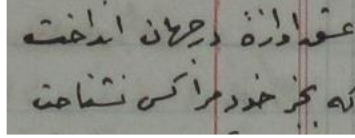 عشق اوازهٔ در جهان انداخت
که بجز خود مرا کس نشناخت